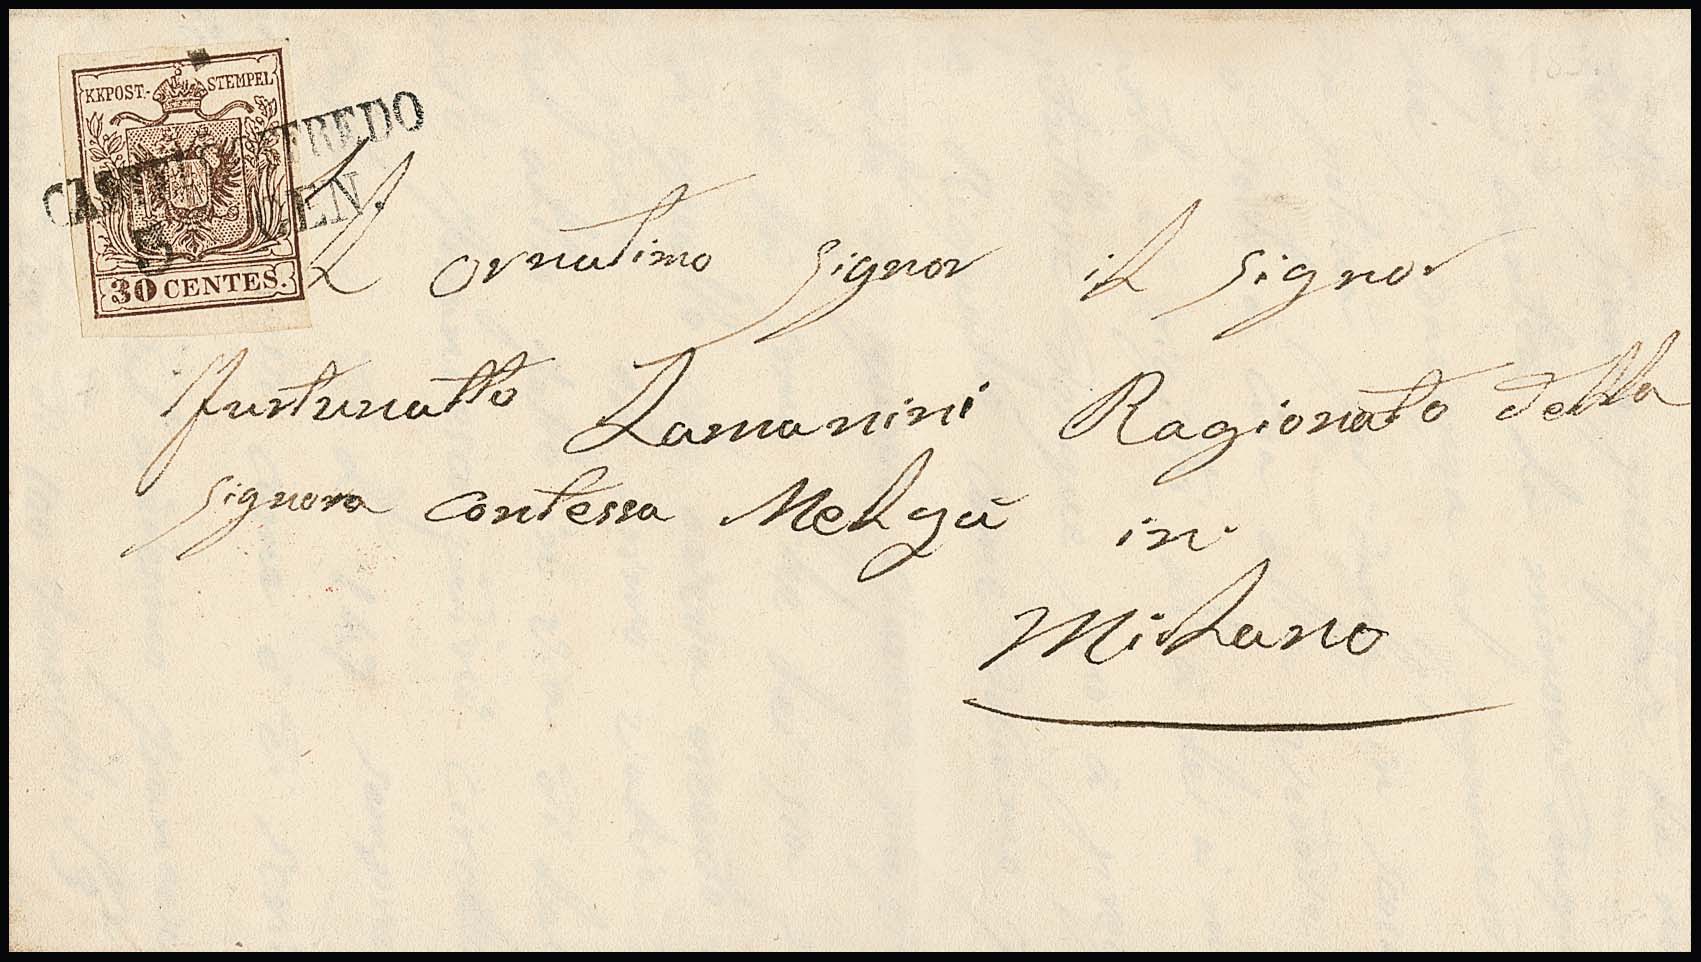 KKPOST-STEMPEL
30 CENTES.
CASTEL GOFFREDO
5 GEN.
L Ornatimo Signor il Signor
furtunatto Zamanini Ragionato della
Signora Contessa Melgù in
Milano